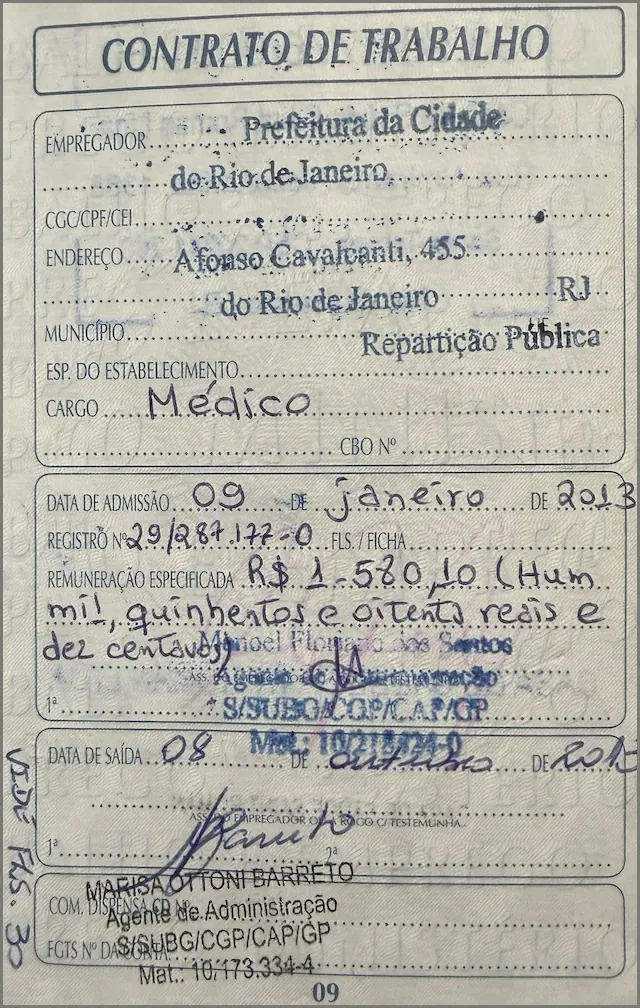 CONTRATO DE TRABALHO
EMPREGADOR Prefeitura da Cidade
do Rio de Janeiro
CGC/CPF/CEI
ENDEREÇO Afonso Cavalcanti, 455
do Rio de Janeiro RJ
MUNICÍPIO
Repartição Pública
ESP. DO ESTABELECIMENTO
CARGO Médico
CBO Nº
DATA DE ADMISSÃO 09 DE janeiro DE 2013
REGISTRO Nº 29/287.177-0 FLS. / FICHA
REMUNERAÇÃO ESPECIFICADA R$ 1.580,10 (Hum
mil, quinhentos e oitenta reais e
dez centavos)
Manoel Floriano dos Santos
Agente de Administração
1ª S/SUBG/CGP/CAP/GP
Mat.: 10/218424-0
DATA DE SAÍDA 08 DE outubro DE
ASS. DO EMPREGADOR OU A ROGO C/ TESTEMUNHA
1ª 2ª
MARISA OTTONI BARRETO
COM. DISPENSA CD Nº
Agente de Administração
S/SUBG/CGP/CAP/GP
FGTS Nº DA CONTA
Mat.: 10/173.334-4
VIDE FLS. 30
09